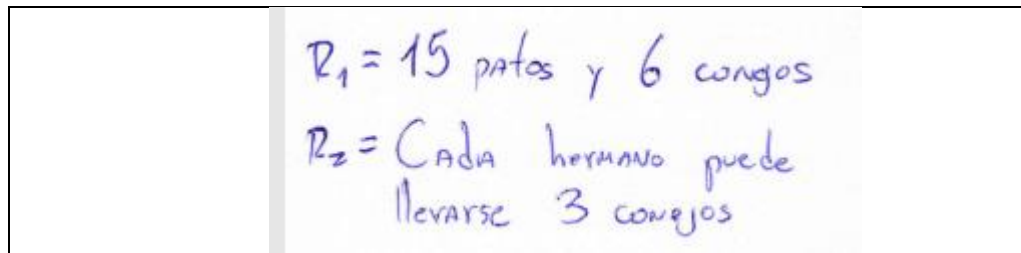 R₁ = 15 patos y 6 conejos
R₂ = Cada hermano puede
llevarse 3 conejos